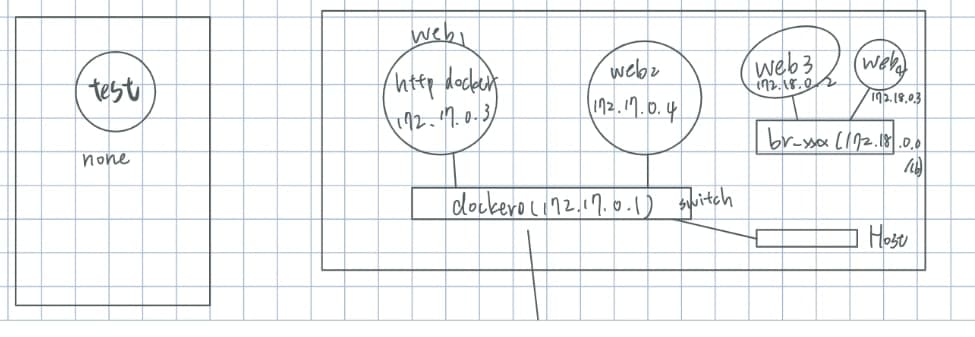 test
none
web1
http docker
172.17.0.3
web2
172.17.0.4
web3
172.18.0.2
web4
172.18.0.3
br-xxx (172.18.0.0
/16)
docker0 (172.17.0.1) switch
Host